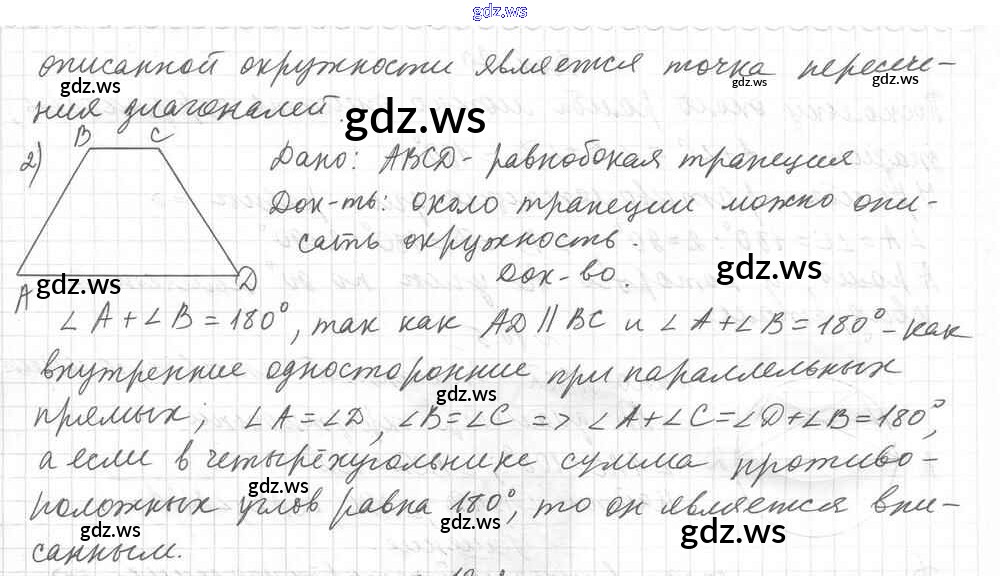 gdz.ws
описанной окружности является точка пересече-
ния диагоналей.
gdz.ws
gdz.ws
gdz.ws
2)
B C
A D
Дано: ABCD - равнобокая трапеция
Док-ть: около трапеции можно опи-
сать окружность.
Док-во.
gdz.ws
gdz.ws
∠A+∠B=180°, так как AD∥BC и ∠A+∠B=180° - как
внутренние односторонние при параллельных
gdz.ws
прямых; ∠A=∠D, ∠B=∠C => ∠A+∠C=∠D+∠B=180°,
а если в четырёхугольнике сумма противо-
gdz.ws
положных углов равна 180°, то он является впи-
gdz.ws
gdz.ws
gdz.ws
санным.